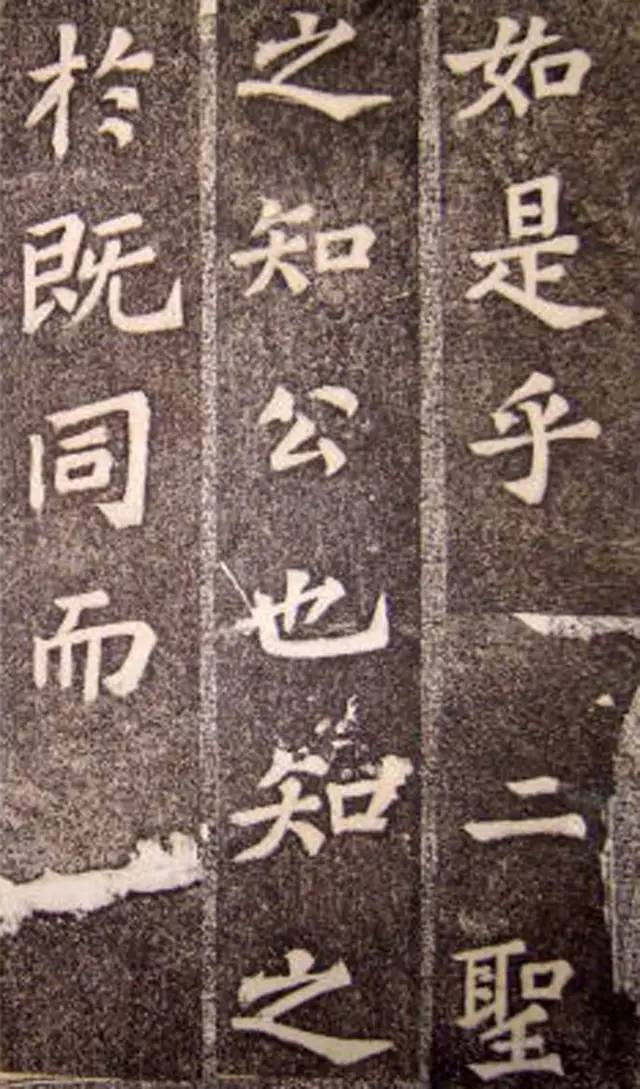 如是乎二聖
之知公也知之
於既同而